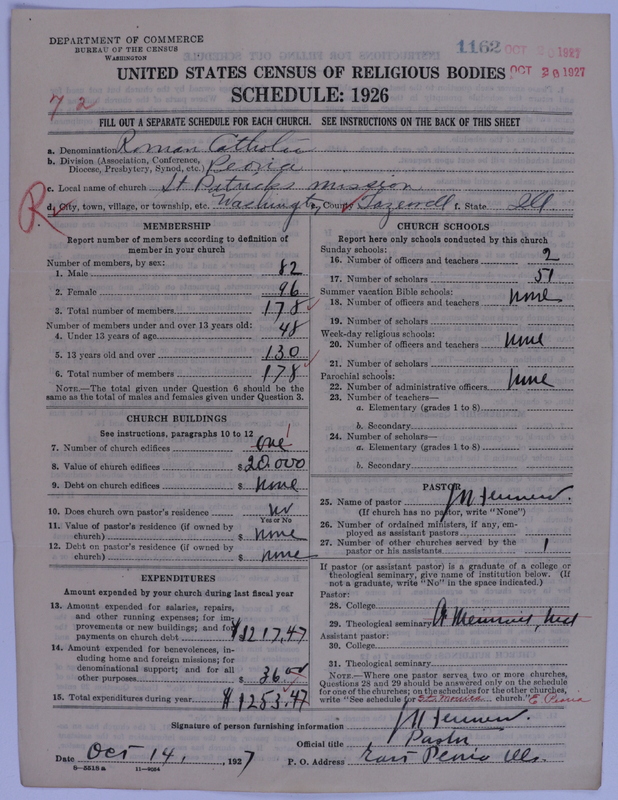 DEPARTMENT OF COMMERCE
BUREAU OF THE CENSUS
WASHINGTON
1162 OCT 20 1927
OCT 26 1927
UNITED STATES CENSUS OF RELIGIOUS BODIES
SCHEDULE: 1926
72
FILL OUT A SEPARATE SCHEDULE FOR EACH CHURCH. SEE INSTRUCTIONS ON THE BACK OF THIS SHEET
a. Denomination Roman Catholic
b. Division (Association, Conference, Diocese, Presbytery, Synod, etc.) Peoria
c. Local name of church St Patricks mission
R
d. City, town, village, or township, etc. Washington e. County Tazewell f. State Ill
MEMBERSHIP
Report number of members according to definition of
member in your church
Number of members, by sex:
1. Male 82
2. Female 96
3. Total number of members 178
Number of members under and over 13 years old:
4. Under 13 years of age 48
5. 13 years old and over 130
6. Total number of members 178
NOTE.—The total given under Question 6 should be the
same as the total of males and females given under Question 3.
CHURCH BUILDINGS
See instructions, paragraphs 10 to 12
7. Number of church edifices one 1
8. Value of church edifices $ 20.000
9. Debt on church edifices $ none
10. Does church own pastor's residence no
Yes or No
11. Value of pastor's residence (if owned by
church) $ none
12. Debt on pastor's residence (if owned by
church) $ none
EXPENDITURES
Amount expended by your church during last fiscal year
13. Amount expended for salaries, repairs,
and other running expenses; for im-
provements or new buildings; and for
payments on church debt $1217,47
14. Amount expended for benevolences, in-
cluding home and foreign missions; for
denominational support; and for all
other purposes $ 36.00
15. Total expenditures during year $1253.47
CHURCH SCHOOLS
Report here only schools conducted by this church
Sunday schools:
16. Number of officers and teachers 2
17. Number of scholars 51
Summer vacation Bible schools:
18. Number of officers and teachers none
19. Number of scholars
Week-day religious schools:
20. Number of officers and teachers none
21. Number of scholars
Parochial schools:
22. Number of administrative officers none
23. Number of teachers—
a. Elementary (grades 1 to 8)
b. Secondary
24. Number of scholars—
a. Elementary (grades 1 to 8)
b. Secondary
PASTOR
25. Name of pastor
(If church has no pastor, write "None")
26. Number of ordained ministers, if any, em-
ployed as assistant pastors
27. Number of other churches served by the
pastor or his assistants 1
If pastor (or assistant pastor) is a graduate of a college or
theological seminary, give name of institution below. (If
not a graduate, write "No" in the space indicated.)
Pastor:
28. College
29. Theological seminary St Meinrad, Ind
Assistant pastor:
30. College
31. Theological seminary
NOTE.—Where one pastor serves two or more churches,
Questions 28 and 29 should be answered only on the schedule
for one of the churches; on the schedules for the other churches,
write "See schedule for St. Monica church." E Peoria
Signature of person furnishing information
Official title Pastor
Date Oct 14, 1927 P. O. Address East Peoria Ills.
8—5518 a 11—9024